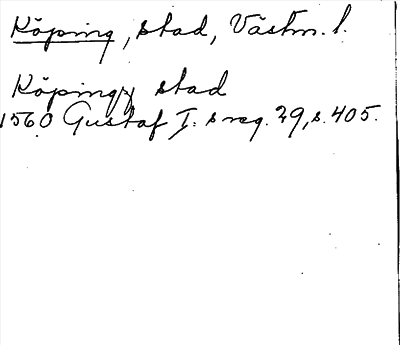 Köping, stad, Västm. l.
Köping stad
1560 Gustaf I. s reg. 29, s. 405.